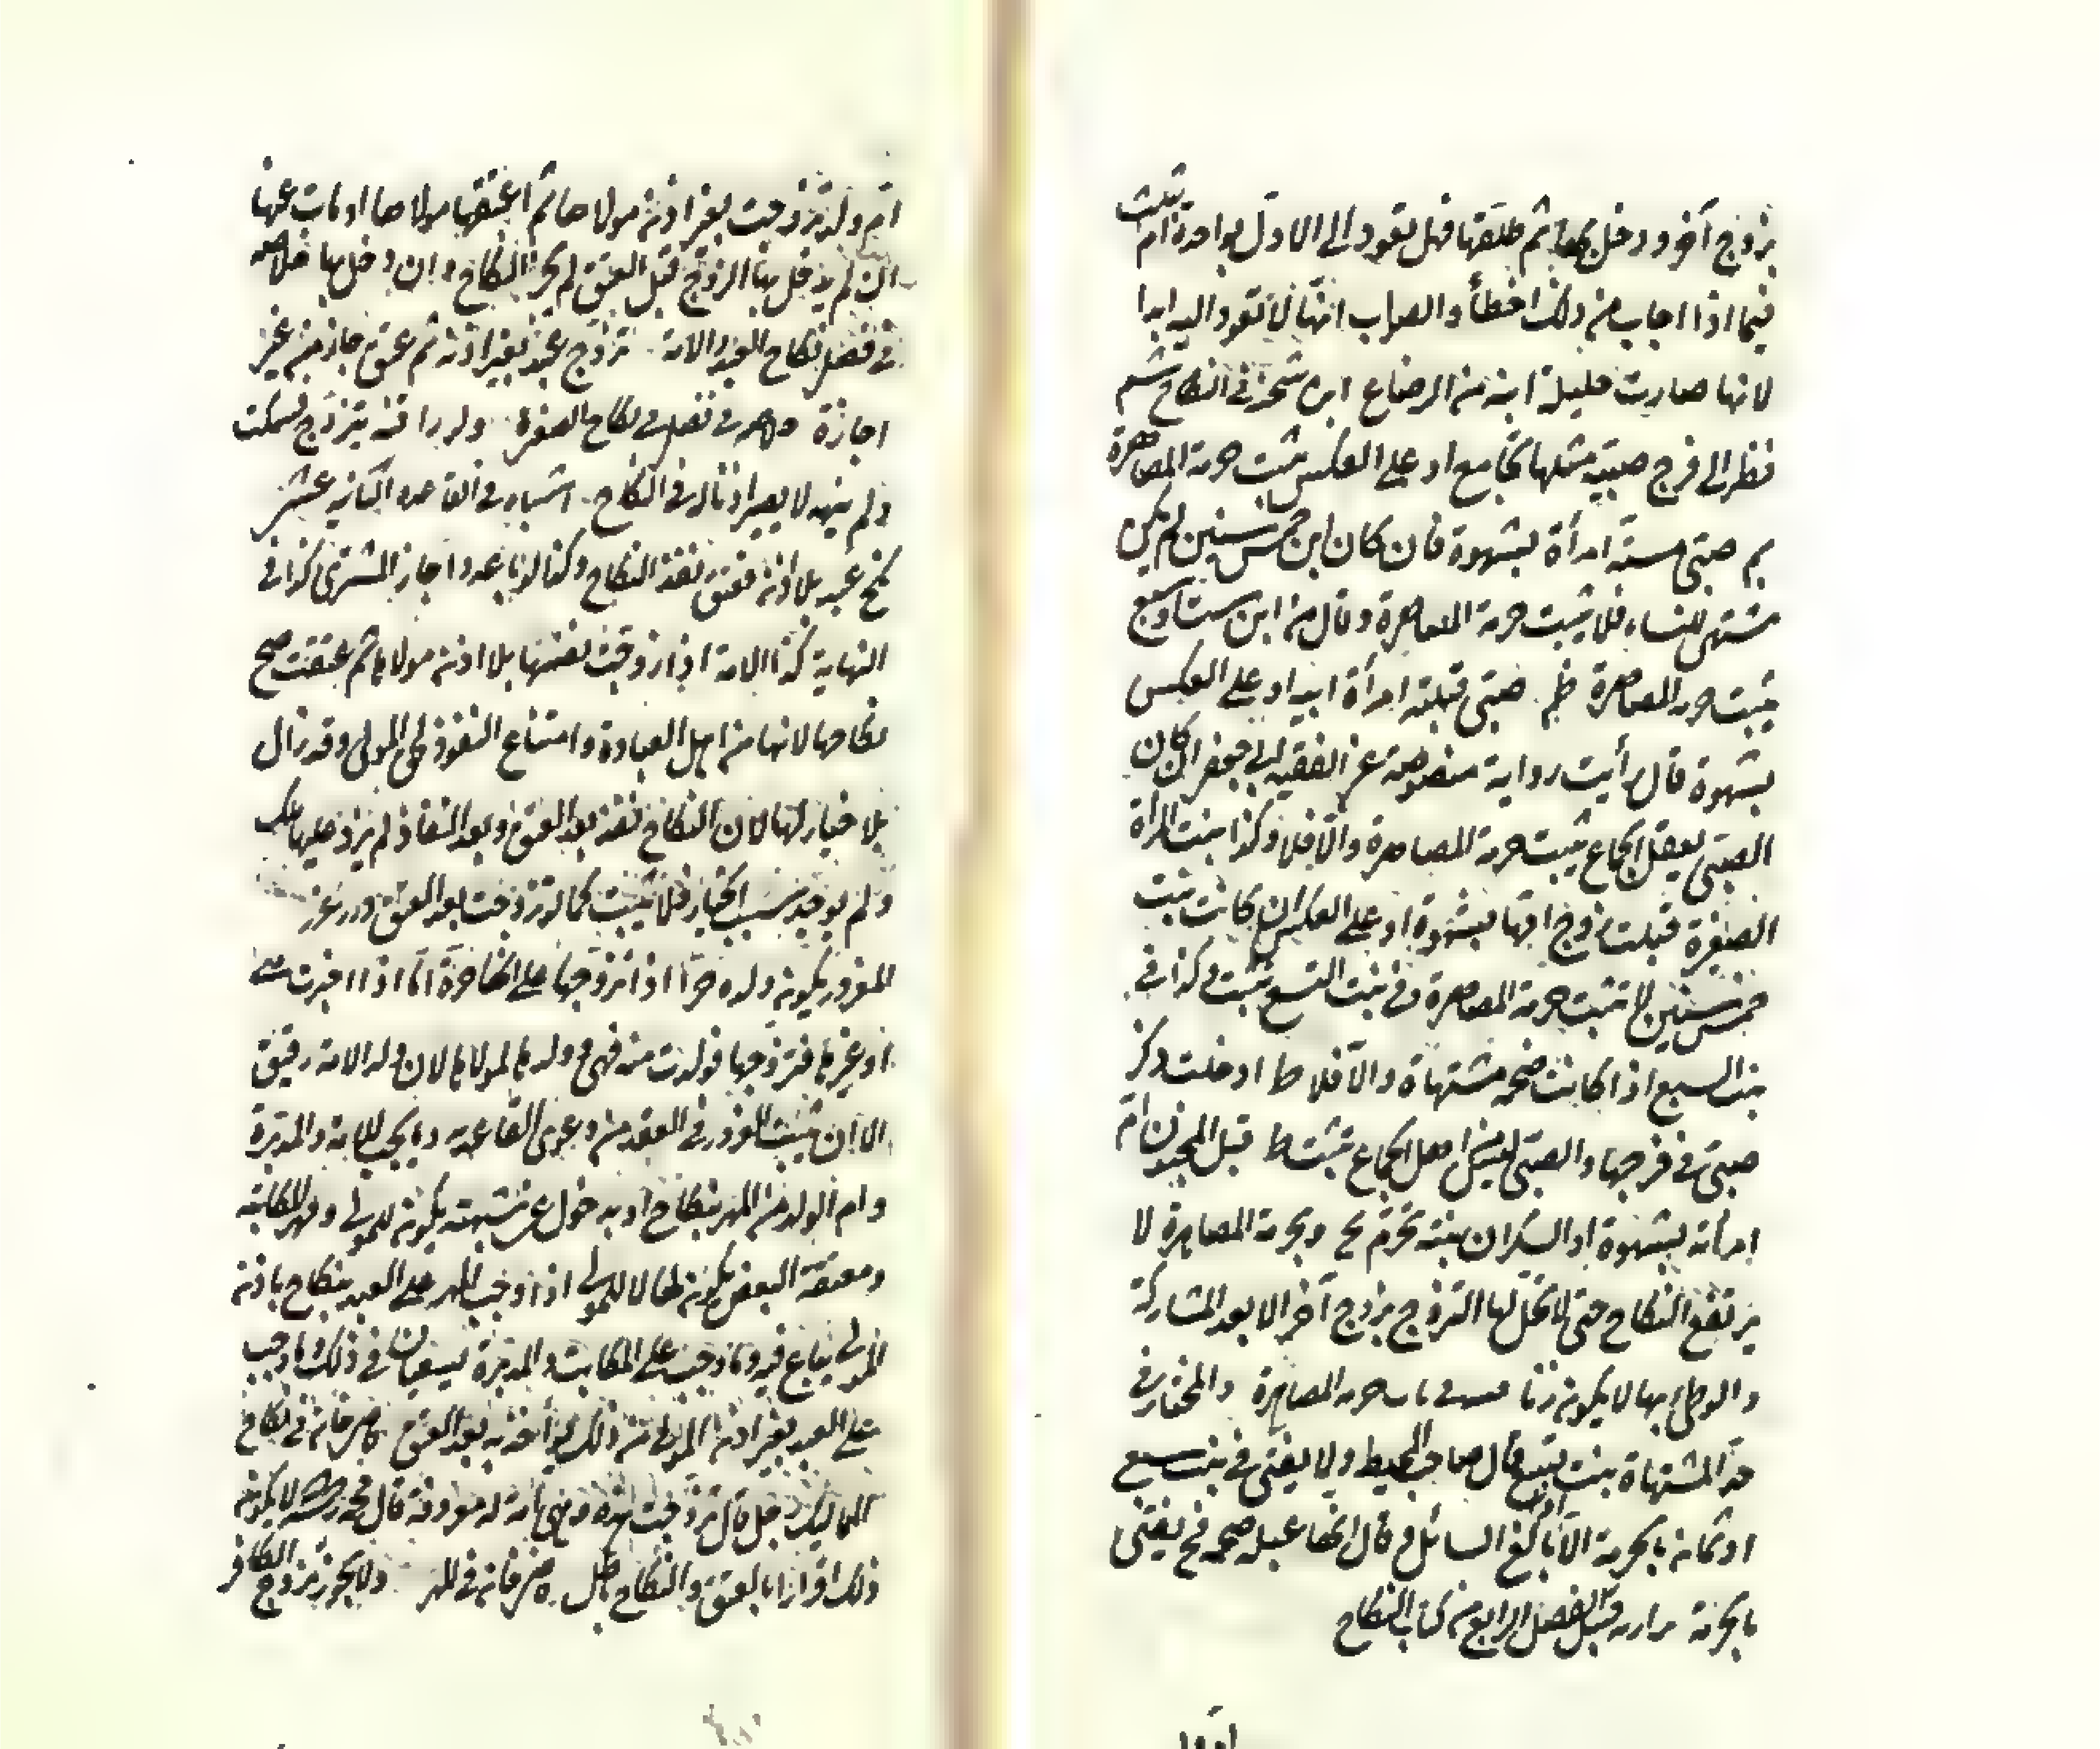 بزوج آخر ودخل بها ثم طلقها فهل تعود الى الاول بواحدة ام بثلث
فيما اذا اجاب من ذلك اخطأ والصواب انها لا تعود اليه ابدا
لانها صارت حليلة ابنه من الرضاع ابن شحنه فى النكاح
نظر الى فرج صبية مثلها تجامع او على العكس ثبت حرمة المصاهرة
بم صبى مسته امرأة بشهوة فان كان ابن خمس سنين لم يكن
مشتهى للنساء فلا يثبت حرمة المصاهرة وقال من ابن ست او سبع
يثبت حرمة المصاهرة ظم صبى قبلته امرأة ابيه او على العكس
بشهوة قال رأيت رواية منصوصة عن الفقيه ابى جعفر ان كان
الصبى يعقل الجماع يثبت حرمة المصاهرة والا فلا وكذا بنت المرأة
الصغيرة قبلت زوج امها بشهوة او على العكس ان كانت بنت
خمس سنين لا تثبت حرمة المصاهرة وفى بنت التسع تثبت وكذا فى
بنت السبع اذا كانت ضخمة مشتهاة والا فلا ط ادخلت ذكر
صبى فى فرجها والصبى ليس من اهل الجماع تثبت ط قبل المجنون ام
امرأته بشهوة او السكران بنته تحرم مح وبحرمة المصاهرة لا
يرتفع النكاح حتى لا تحل لها التزوج بزوج آخر الا بعد المتاركة
والوطئ بها لا يكون زنا فى باب حرمة المصاهرة والمختار فى
حد المشتهاة بنت تسع قال صاحب المحيط ولا يفتى فى بنت سبع
او ثمان بالحرمة الا ان بالغ السائل وقال انها عبلة ضخمة فح يفتى
بالحرمة قبيل الفصل الرابع من كتاب النكاح
ام ولد تزوجت بغير اذن مولاها ثم اعتقها مولاها او مات عنها
ان لم يدخل بها الزوج قبل العتق لم يجز النكاح وان دخل بها خلاصه
فى فصل نكاح العبد والامة تزوج عبد بغير اذنه ثم عتق جاز من غير
اجازة فى فصل فى نكاح الصغير ولو رأى قنه يتزوج فسكت
ولم ينهه لا يصير اذنا له فى النكاح اشباه فى القاعدة الثانية عشر
نكح عبد بلا اذن فعتق نفذ النكاح وكذا لو باعه واجاز المشترى كذا فى
النهاية كذا الامة اذا زوجت نفسها بلا اذن مولاها ثم عتقت صح
نكاحها لانها من اهل العبادة وامتناع النفوذ لحق المولى وقد زال
بلا خيار لها لان النكاح نفذ بعد العتق وبعد النفاذ لم يزد عليها ملك
ولم يوجد سبب الخيار فلا يثبت كما لو تزوجت بعد العتق درر غرر
المغرور يكون ولده حرا اذا تزوجها على انها حرة اما اذا اخبرت
او غيرها فتزوجها فولدت منه فهى وولدها لمولاها لان ولد الامة رقيق
الا ان يثبت الغرور فى العقد من دعوى القاعديه وما يجب للامة والمدبرة
وام الولد من المهر بنكاح او بدخول عن شبهة يكون للمولى ومهر المكاتبة
ومعتقة البعض يكون لها لا للمولى اذا وجب المهر على العبد بنكاح باذن
المولى يباع فيه وما وجب على المكاتب والمدبرة يسعيان فى ذلك وما وجب
على العبد بغير اذن المولى من ذلك يؤاخذ به بعد العتق قاضيخان فى نكاح
المماليك رجل قال تزوجت هذه وهى امة له معروفة قال محمد رحمه الله لا يكون
ذلك اقرارا بالعتق والنكاح باطل قاضيخان فى المهر ولا يجوز تزوج الكافر